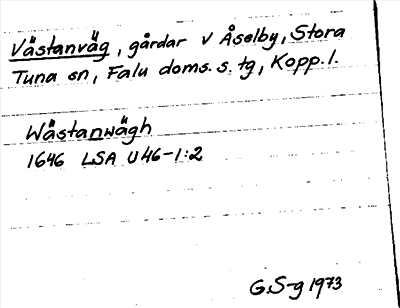 Västanväg, gårdar v Åselby, Stora
Tuna sn, Falu doms. s. tg, Kopp. l.
Wästanwägh
1646 LSA U46-1:2
G.S-g 1973